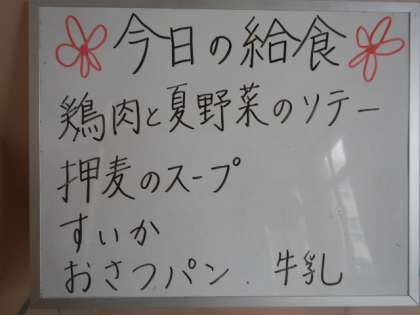 今日の給食
鶏肉と夏野菜のソテー
押麦のスープ
すいか
おさつパン. 牛乳